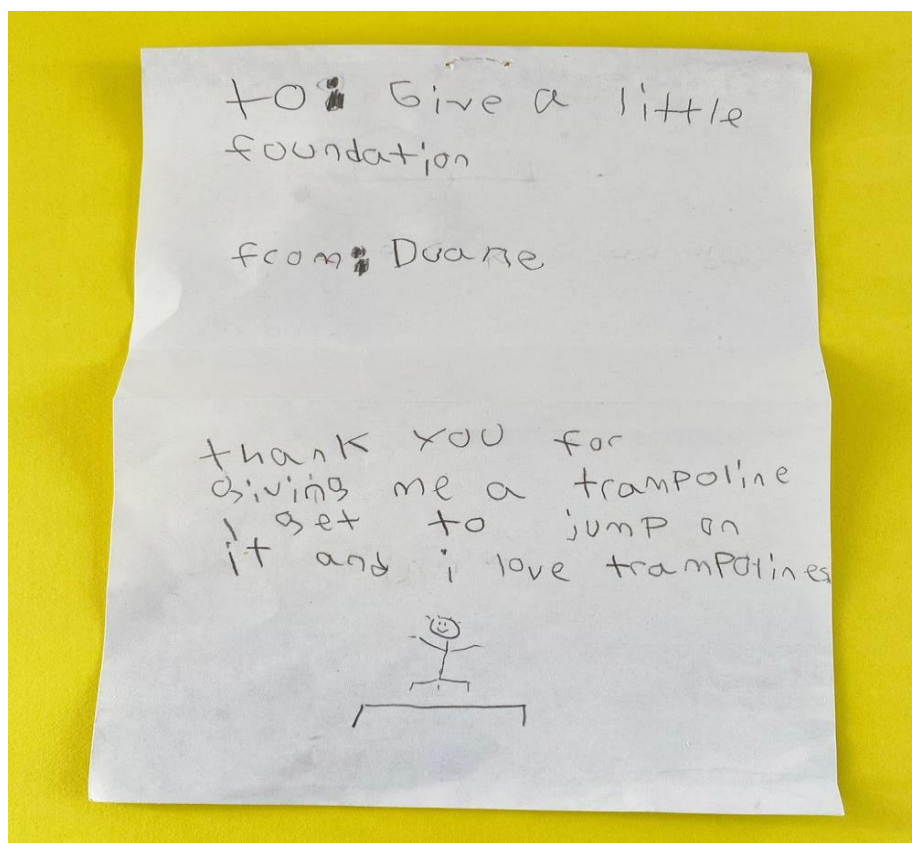 to: Give a little
foundation
from: Duane
thank you for
giving me a trampoline
I get to jump on
it and i love trampolines